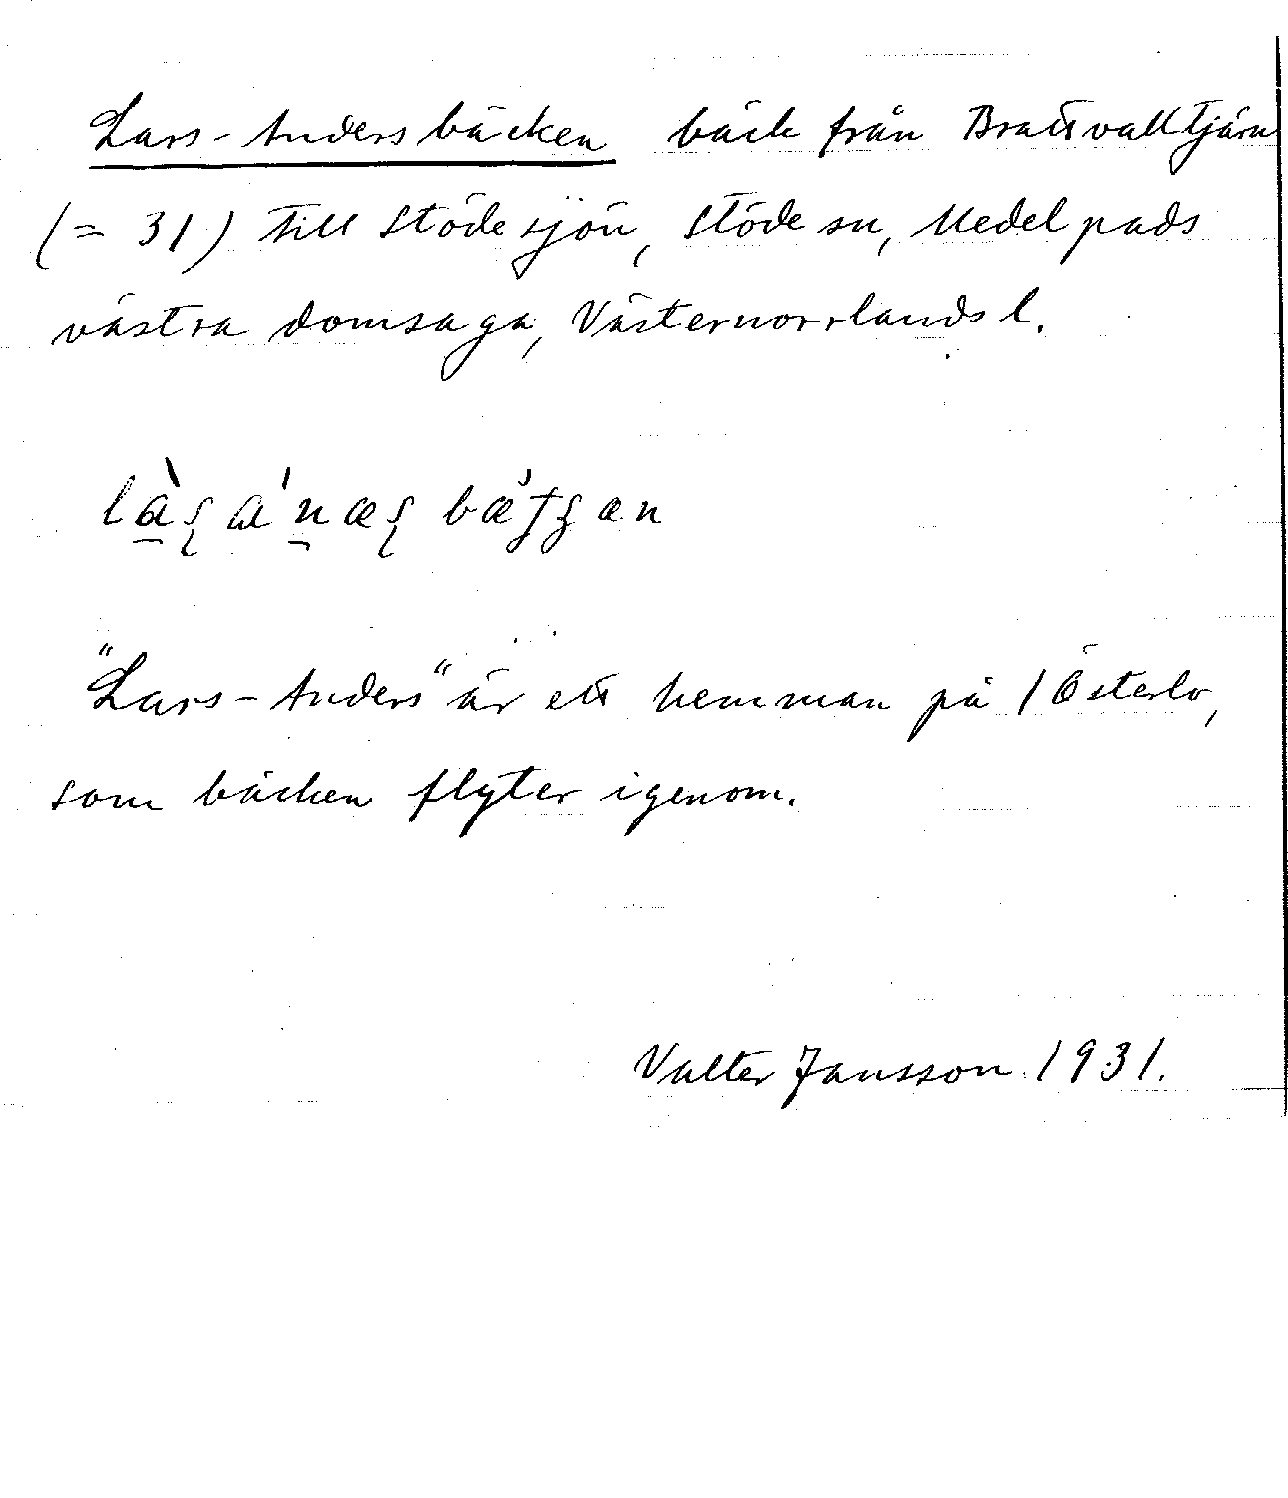 Lars-Andersbäcken bäck från Brattvalltjärn
(= 31) till Stödesjön, Stöde sn, Medelpads
västra domsaga, Västernorrlands l.
"Lars-Anders" är ett hemman på / Österlo,
som bäcken flyter igenom.
Valter Jansson 1931.